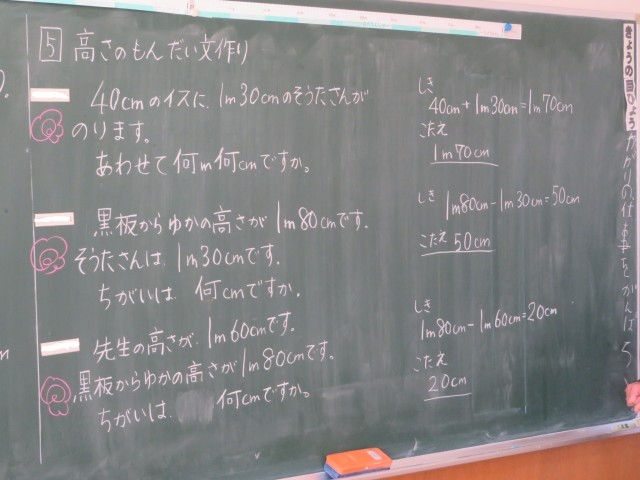 5 高さのもんだい文作り
40cmのイスに、1m30cmのそうたさんが
のります。
あわせて何m何cmですか。
しき
40cm+1m30cm=1m70cm
こたえ
1m70cm
黒板からゆかの高さが1m80cmです。
そうたさんは、1m30cmです。
ちがいは、何cmですか。
しき 1m80cm-1m30cm=50cm
こたえ 50cm
先生の高さが、1m60cmです。
黒板からゆかの高さが1m80cmです。
ちがいは、何cmですか。
しき
1m80cm-1m60cm=20cm
こたえ
20cm
きょうの目ひょう
かかりの仕事をがんばろう